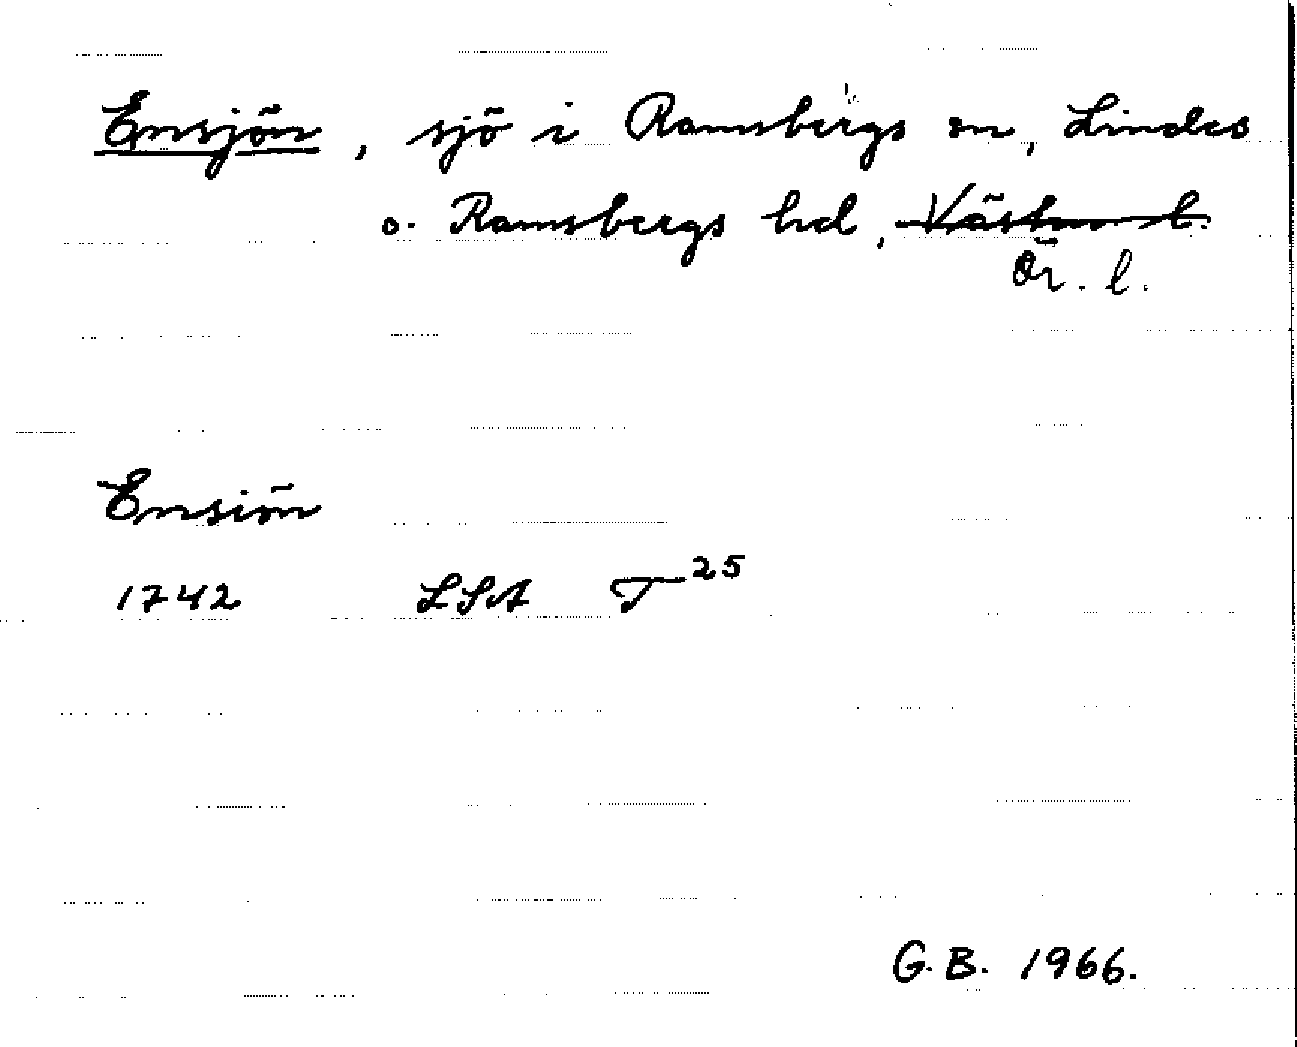 Ensjön, sjö i Ramsbergs sn, Lindes
o. Ramsbergs hd, Västm l.
Ör. l.
Ensiön
1742 LSA T 25
G.B. 1966.